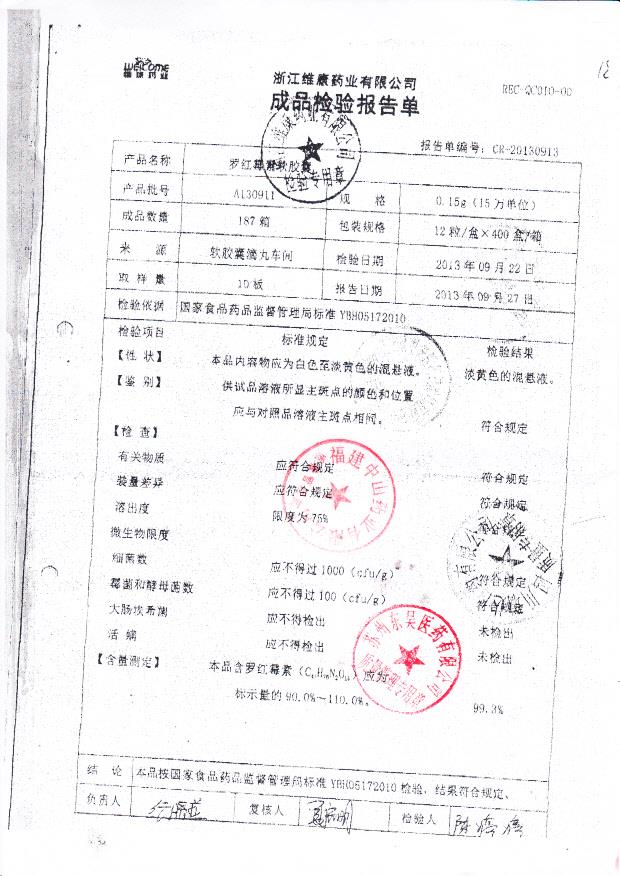 Welcome
维康药业
浙江维康药业有限公司
REC-QC010-00
成品检验报告单
报告单编号：CR-20130913
产品名称 罗红霉素软胶囊
检验专用章
产品批号 A130911 规 格 0.15g（15万单位）
成品数量 187箱 包装规格 12粒/盒×400盒/箱
来 源 软胶囊滴丸车间 检验日期 2013年09月22日
取样量 10板 报告日期 2013年09月27日
检验依据 国家食品药品监督管理局标准YBH05172010
检验项目 标准规定 检验结果
【性 状】 本品内容物应为白色至淡黄色的混悬液。 淡黄色的混悬液。
【鉴 别】 供试品溶液所显主斑点的颜色和位置
应与对照品溶液主斑点相同。 符合规定
【检 查】
有关物质 应符合规定 符合规定
装量差异 应符合规定 符合规定
溶出度 限度为75% 符合规定
微生物限度
细菌数 应不得过1000（cfu/g） 符合规定
霉菌和酵母菌数 应不得过100（cfu/g） 符合规定
大肠埃希菌 应不得检出 未检出
活 螨 应不得检出 未检出
【含量测定】 本品含罗红霉素 应为
标示量的90.0%～110.0%。 99.3%
福建中山药业有限公司
苏州东吴医药有限公司
结 论 本品按国家食品药品监督管理局标准YBH05172010检验，结果符合规定、
负责人 复核人 检验人